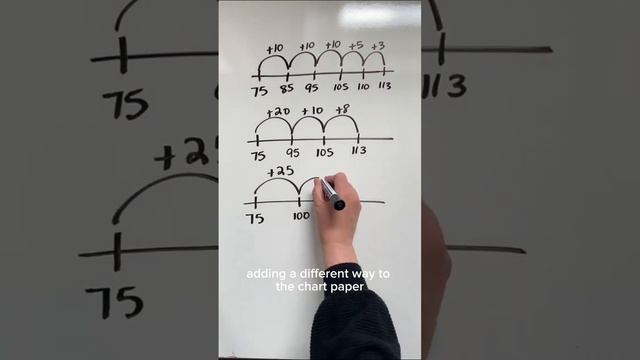 +10 +10 +10 +5 +3
75 85 95 105 110 113
+20 +10 +8
75 95 105 113
+25
75 100
adding a different way to
the chart paper
75
+25
75
113